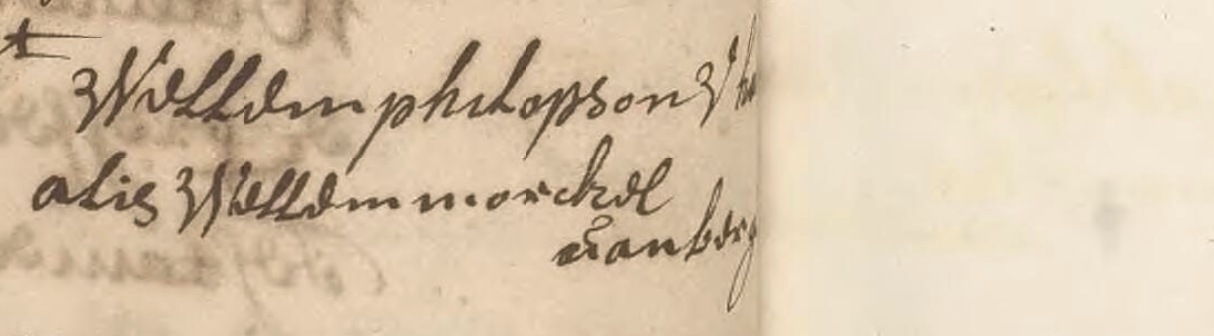 Willem philopson
alis Willem morckel
van berg